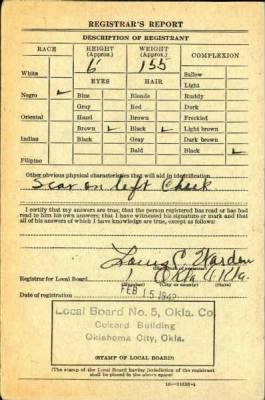 REGISTRAR'S REPORT
DESCRIPTION OF REGISTRANT
RACE HEIGHT (Approx.) WEIGHT (Approx.) COMPLEXION
6' 155
White Sallow
EYES HAIR Light
Negro ✓ Blue Blonde Ruddy
Gray Red Dark
Oriental Hazel Brown Freckled
Brown ✓ Black ✓ Light brown
Indian Black Gray Dark brown
Bald Black ✓
Filipino
Other obvious physical characteristics that will aid in identification
Scar on left Cheek
I certify that my answers are true; that the person registered has read or has had
read to him his own answers; that I have witnessed his signature or mark and that
all of his answers of which I have knowledge are true, except as follows:
Louis C. Warden
(Signature of registrar)
Registrar for Local Board 1 Okla Okla.
(Number) (City or county) (State)
Date of registration FEB 15 1942
Local Board No. 5, Okla. Co.
Colcord Building
Oklahoma City, Okla.
(STAMP OF LOCAL BOARD)
(The stamp of the Local Board having jurisdiction of the registrant
shall be placed in the above space)